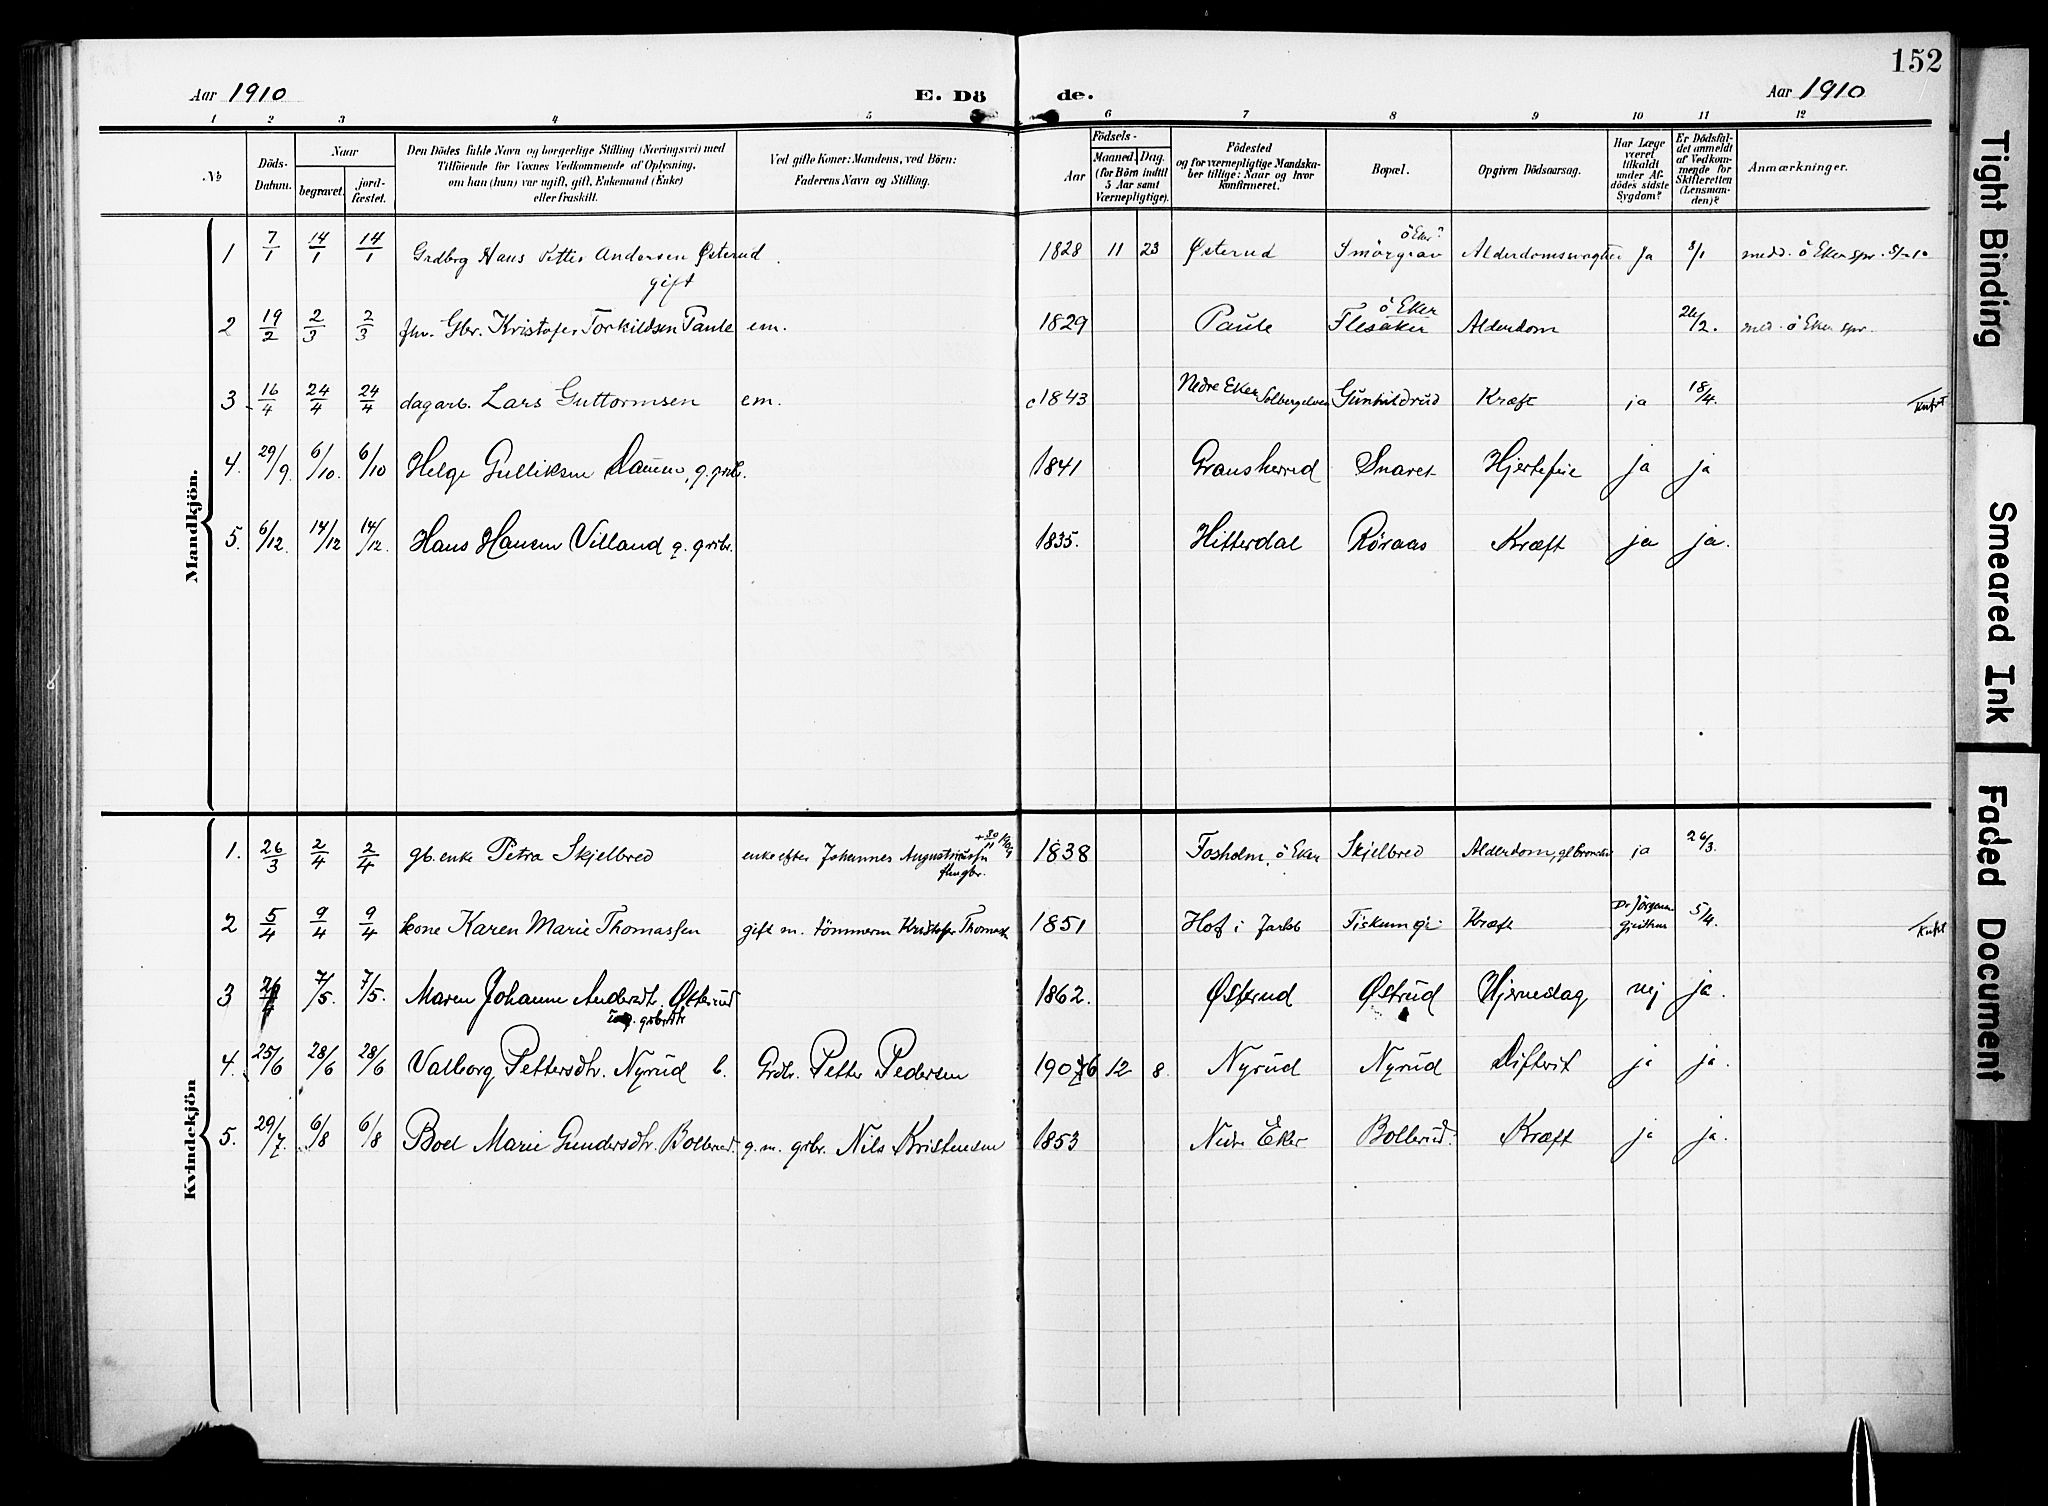 152
Aar 1910
E. Dö
de.
Aar 1910
1 2 3 4 5 6 7 8 9 10 11 12
No
Döds-Datum.
Naar
begravet.
jord-fæstet.
Den Dödes fulde Navn og borgerlige Stilling (Næringsvei) med
Tilföiende for Voxnes Vedkommende af Oplysning,
om han (hun) var ugift, gift, Enkemand (Enke)
eller fraskilt.
Ved gifte Koner: Mandens, ved Börn:
Faderens Navn og Stilling.
Födsels-
Aar
Maaned. Dag.
(for Börn indtil
5 Aar samt
Værnepligtige).
Födested
og for værnepligtige Mandska-
ber tillige: Naar og hvor
konfirmeret.
Bopæl.
Opgiven Dödsaarsag.
Har Læge
været
tilkaldt
under Af-
dödes sidste
Sygdom?
Er Dödsfal-
det anmeldt
af Vedkom-
mende for
Skifteretten
(Lensman-
den)?
Anmærkninger.
Mandkjön.
1 7/1 14/1 14/1 Hans Petter Andersen Østerud. 1828 11 23 Østerud Smörgrav Ja 8/1 medd. ö Eker spr.
ö Eker
gift
2 19/2 2/3 2/3 fhv. Gbr. Kristofer Torkildsen Paule em. 1829 Paule Flesaker Alderdom 26/2. med. ö Eker spr.
ö Eker
3 16/4 24/4 24/4 dagarb. Lars Guttormsen em. c 1843 Nedre Eker Solbergelven Gunhildrud Kræft ja 18/4.
4. 29/9 6/10. 6/10 Helge Gulliksen 1841 Gransherred Snaret ja ja
5. 6/12. 14/12 14/12. Hans Hansen Villand g. grbr. 1835. Hitterdal Röraas Kræft ja ja.
Kvindekjön
1. 26/3 2/4 2/4 gb. enke Petra Skjelbred enke efter Johannes 1838 Fosholm, ö Eker Skjelbred Alderdom, ja 26/3.
2 5/4 9/4 9/4 kone Karen Marie Thomassen gift m. tömmerm Kristofer 1851 Hof i Jarlsb Kræft Dr Jörgensen 5/4.
3 7/5. 7/5. Maren Johanne Andersdtr. Østerud 1862. Østerud Østrud Hjerneslag nej ja.
4. 25/6 28/6 28/6 Valborg Pettersdtr. Nyrud b. Grdbr. Petter Pedersen 1906 12 8. Nyrud Nyrud Difterit ja ja.
5. 29/7. 6/8 6/8 Boel Marie Gundersdtr. Bollerud. g. m. grbr. Nils Kristensen 1853 Nedre Eker Bollerud. Kræft ja ja.
Tight Binding
Smeared Ink
Faded Document